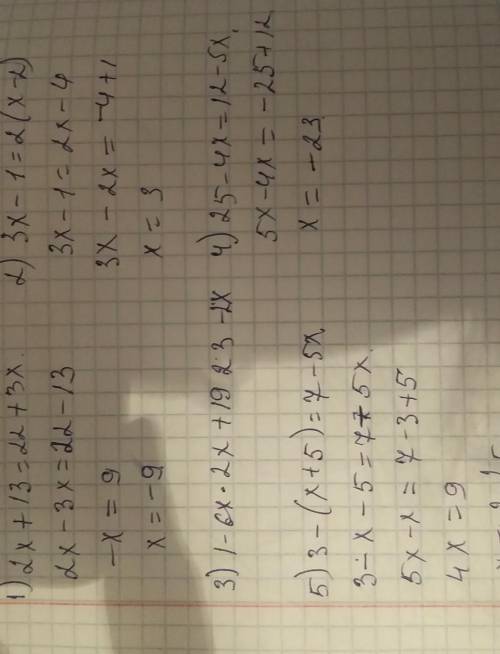 1) 2x + 13 = 22 + 3x.
2x - 3x = 22 - 13
-x = 9
x = -9
2) 3x - 1 = 2(x - 2)
3x - 1 = 2x - 4
3x - 2x = -4 + 1
x = 3
3) 1 - 6x · 2x + 19 2 3 - 2x
4) 25 - 4x = 12 - 5x.
5x - 4x = -25 + 12
x = -23
5) 3 - (x + 5) = 7 - 5x.
3 - x - 5 = 7 - 5x.
5x - x = 7 - 3 + 5
4x = 9